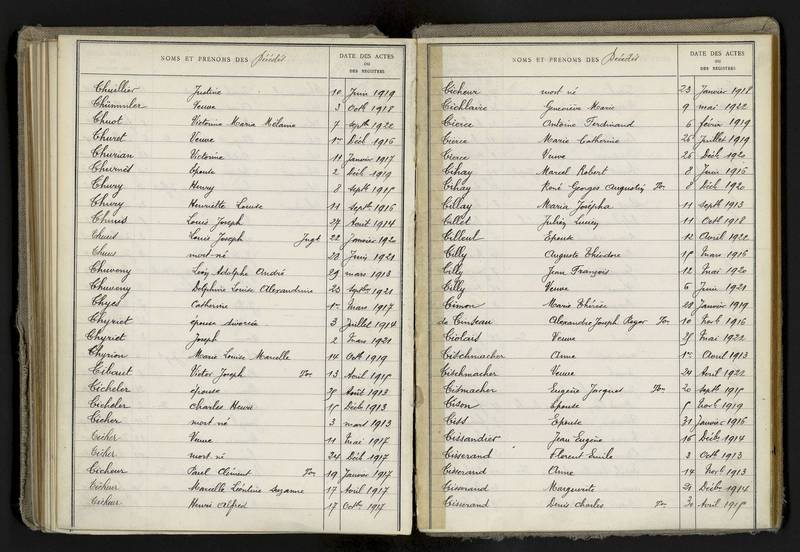 NOMS ET PRENOMS DES Décédés
DATE DES ACTES
OU
DES REGISTRES
Chuillier Justine 10 Juin 1919
Chümmler Veuve 3 Octb 1918
Chuot Victorine Maria Mélanie 7 Septb 1922
Churet Veuve 1er Décb 1916
Churian Victorine 11 Janvier 1917
Churnès épouse 2 Décb 1919
Chury Henry 8 Septb 1915
Chury Henriette Louise 11 Septb 1916
Chuus Louis Joseph 27 Août 1914
Chuus Louis Joseph Jugt 22 Janvier 1920
Chuus mort-né 28 Juin 1921
Chuveny Léon Adolphe André 29 mars 1913
Chuvigny Delphine Louise Alexandrine 23 Septbre 1921
Chyes Catherine 1er Mars 1917
Chyriet épouse divorcée 3 Juillet 1914
Chyriet Joseph 2 Mars 1921
Chyrion Marie Louise Marcelle 14 Octb 1919
Cibaut Victor Joseph Ton 13 Avril 1915
Cicheler épouse 25 Août 1913
Cicheler Charles Henri 15 Décb 1913
Cicher mort né 3 mars 1913
Cicher Veuve 11 Mai 1917
Cicher mort né 24 Décb 1917
Cicheur Paul Clément Ton 19 Janvier 1917
Cicheur Marcelle Léontine Suzanne 17 Avril 1917
Cicheur Henri Alfred 17 Octb 1917
NOMS ET PRENOMS DES Décédés
DATE DES ACTES
OU
DES REGISTRES
Cicheur mort né 23 Janvier 1918
Cicklaire Geneviève Marie 9 mai 1922
Cierce Antoine Ferdinand 6 février 1919
Cierce Marie Catherine 26 Juillet 1919
Cierce Veuve 26 Décb 1920
Cihay Marcel Robert 8 Juin 1916
Cihay René Georges Augustin Ton 8 Décb 1920
Cillay Maria Josépha 11 Septb 1913
Cillet Julien Lucien 11 Octb 1918
Cilleul Epouse 12 Avril 1921
Cilly Auguste Théodore 15 Mars 1916
Cilly Jean François 12 Mai 1920
Cilly Veuve 6 Juin 1921
Cimon Marie Thérèse 28 Janvier 1919
de Cinteau Alexandre Joseph Roger Ton 10 Novb 1916
Ciolais Veuve 25 Mai 1922
Citschmacher Anne 1er Avril 1913
Citschmacher Veuve 24 Avril 1922
Citmacher Eugène Jacques Ton 20 Septb 1915
Cison Epouse 5 Novb 1919
Ciss Epouse 31 Janvier 1916
Cissandier Jean Eugène 16 Décb 1914
Cisserand Florent Emile 3 Octb 1913
Cisserand Anne 14 Novb 1913
Cisserand Marguerite 21 Décbre 1914
Cisserand Denis Charles Ton 30 Avril 1915